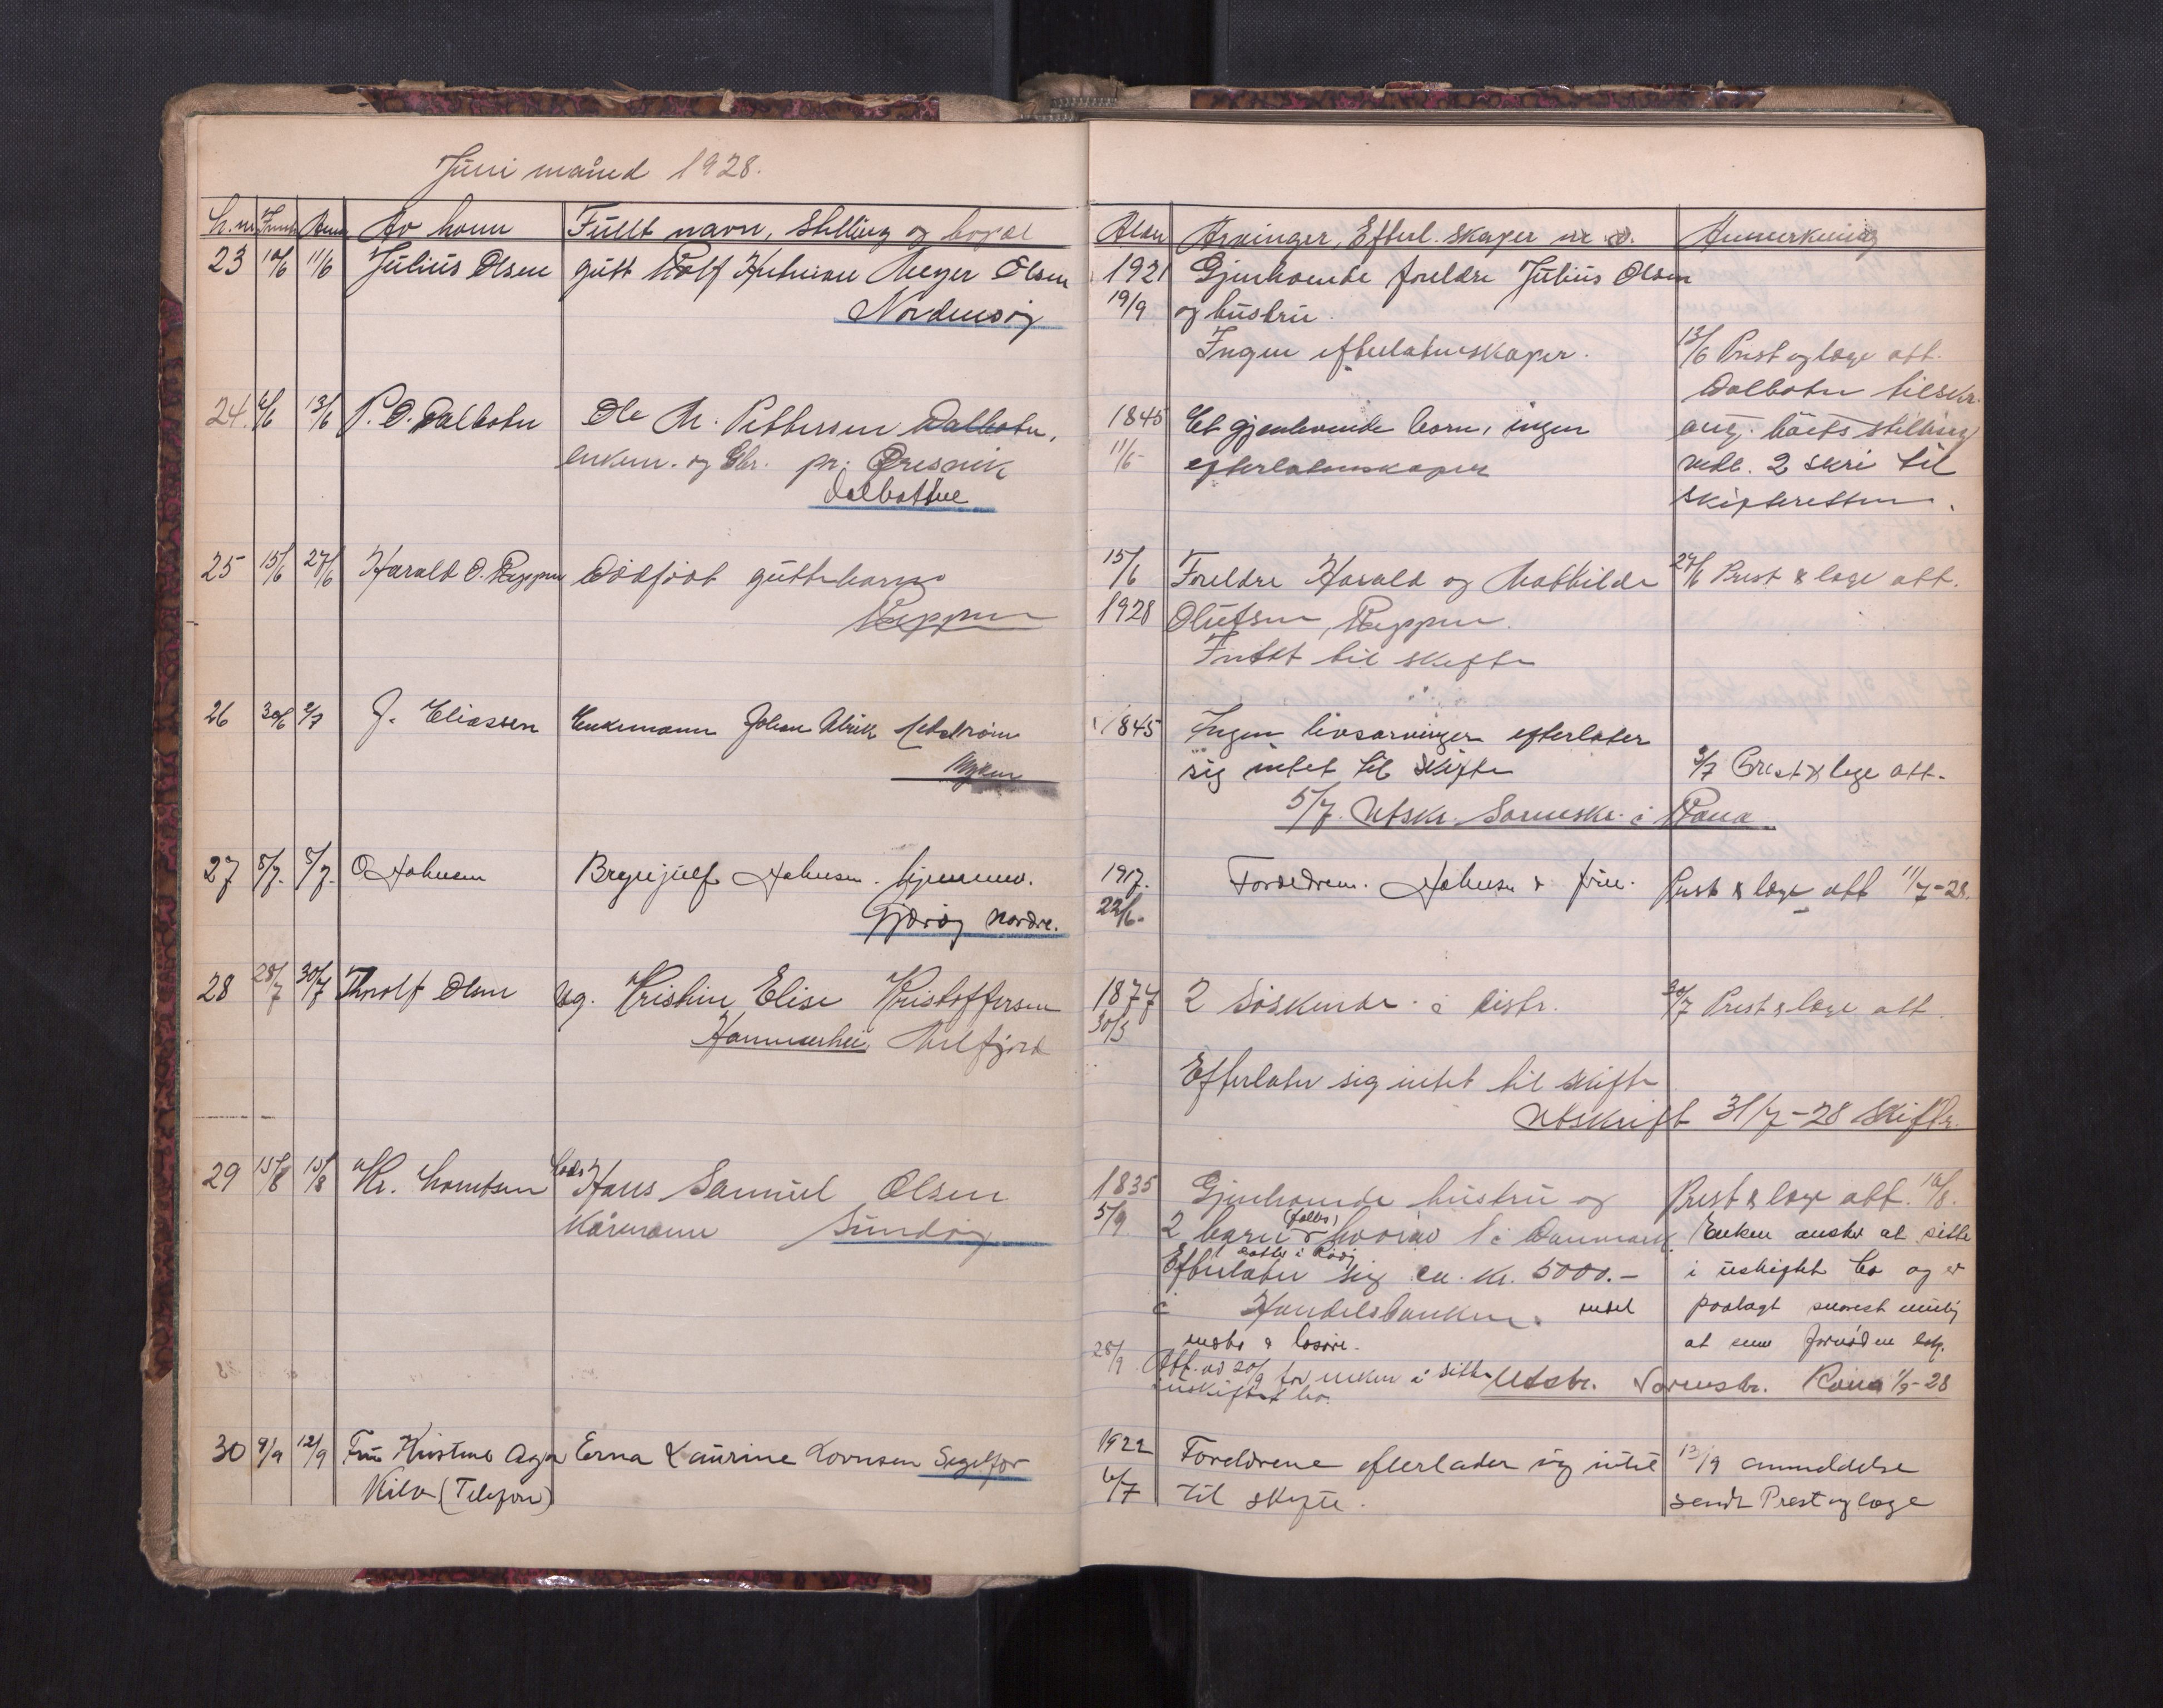 Juni måned 1928.
L.nr Anm Av hvem Fullt navn, stilling og bopæl
Arvinger, Efterl.skaper m.v. Anmerkning
23 10/6 11/6 Julius Olsen gutt Rolf Meyer Olsen
Nordnesøy
1921 Gjenlevende foreldre Julius Olsen
19/9 og hustru.
Ingen efterlatenskaper.
13/6 Prest og læge att.
Dalbotn tilskr.
ang. boets stilling
vedl. 2 skri til
skifteretten.
24. 6/6 13/6 P. O. Dalbotn Ole M. Pettersen Dalbotn,
enkem. og gbr. pr. Øresvik
Dalbotne
1845 Et gjenlevende barn, ingen
11/6 efterlatenskaper
25 15/6 27/6 Harald O. Reppen Dødfødt guttebarn
Reppen
15/6 Foreldre Harald og Mathilde
1928 Olufsen, Reppen.
Intet til skifte
27/6 Prest & læge att.
26 30/6 2/7 J. Eliassen Enkemann Johan Ulrik
Myken
1845 Ingen livsarvinger efterlater
sig intet til skifte
3/7 Prest & læge att.
5/7. Utskr. Sorenskr. i Rana
27 5/7. 5/7. O Johnsen Brynjulf Johnsen. hjemmev.
Gjerøy nordre.
1917. Foreldrene. Johnsen & frue.
22/6.
Prest & læge att 11/7-28.
28 28/7 30/7 Thorolf Olsen Ug. Kristine Elise Kristoffersen
Hammerhei, Melfjord
1877 2 søskende i distr.
30/3
30/7 Prest & læge att.
Efterlater sig intet til skifte
Utskrift 31/7-28 Skifter.
29 15/8 15/8 Kr. Lorntsen Lods Hans Samuel Olsen
Kårmann Sundøy
1835 Gjenlevende hustru og
5/9. 2 barn hvorav 1 i Danmark
1 datter i Rødøy
Efterlater sig ca. kr. 5000.-
i Handelsbanken. samt
innbo & løsøre.
Prest & læge att. 16/8.
Enken ønsker at sitte
i uskiftet bo og er
paalagt snarest mulig
at
28/9 Att. av 20/9 for enken i sitte
i uskiftet bo.
Utskr. Sorenskr. Rana 1/9-28
30 9/9 12/9 Fru Kristine Aga Erna Laurine Lovnsen Segelfor
Kila (Telefon)
1922 Foreldrene efterlader sig intet
6/7 til skifte.
13/9 anmeldelse
sendt Prest og læge